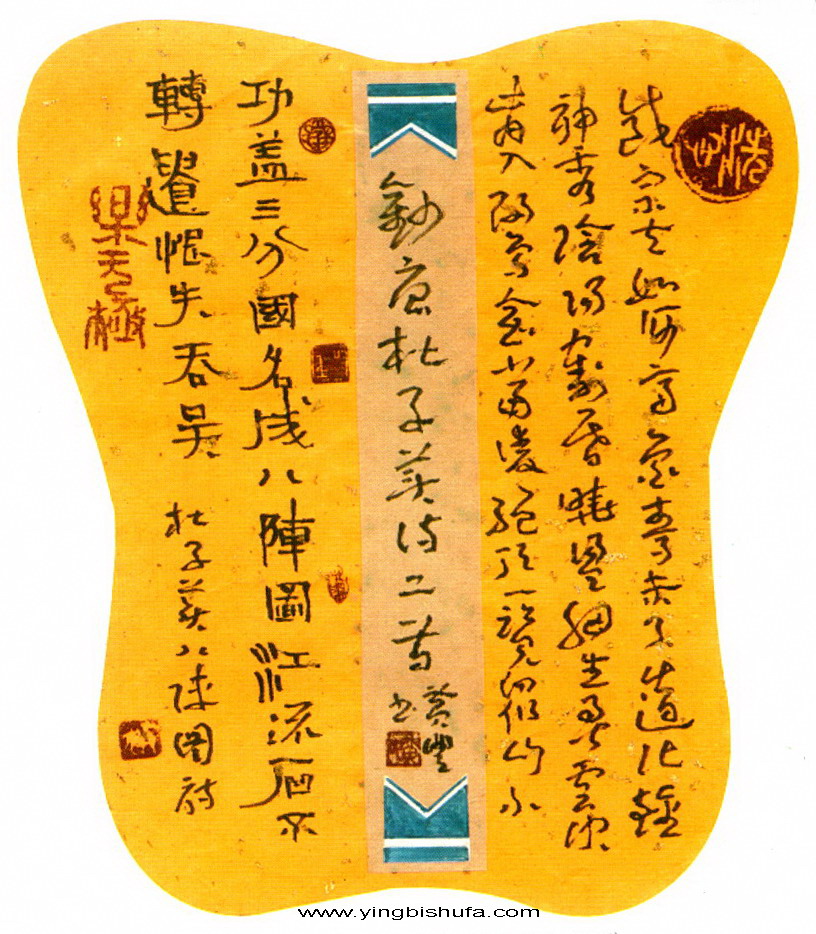 岱宗夫如何齊魯青未了造化鍾
神秀陰陽割昏曉盪胸生層雲決
眥入歸鳥會當凌絕頂一覽眾山小
鈔唐杜子美詩二首
豐書
功蓋三分國名成八陣圖江流石不
轉遺恨失吞吳
杜子美八陣圖詩
www.yingbishufa.com